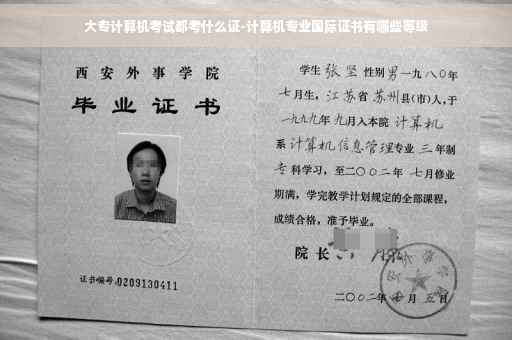 大专计算机考试都考什么证-计算机专业国际证书有哪些等级
西安外事学院
毕业证书
证书编号:0209130411
学生 张坚 性别 男 一九八〇年
七月生，江苏省 苏州县(市)人，于
一九九九年 九月入本院 计算机
系 计算机信息管理专业 三 年制
专 科学习，至二〇〇二年 七月修业
期满，学完教学计划规定的全部课程，
成绩合格，准予毕业。
院长
二〇〇二年 七 月 五 日